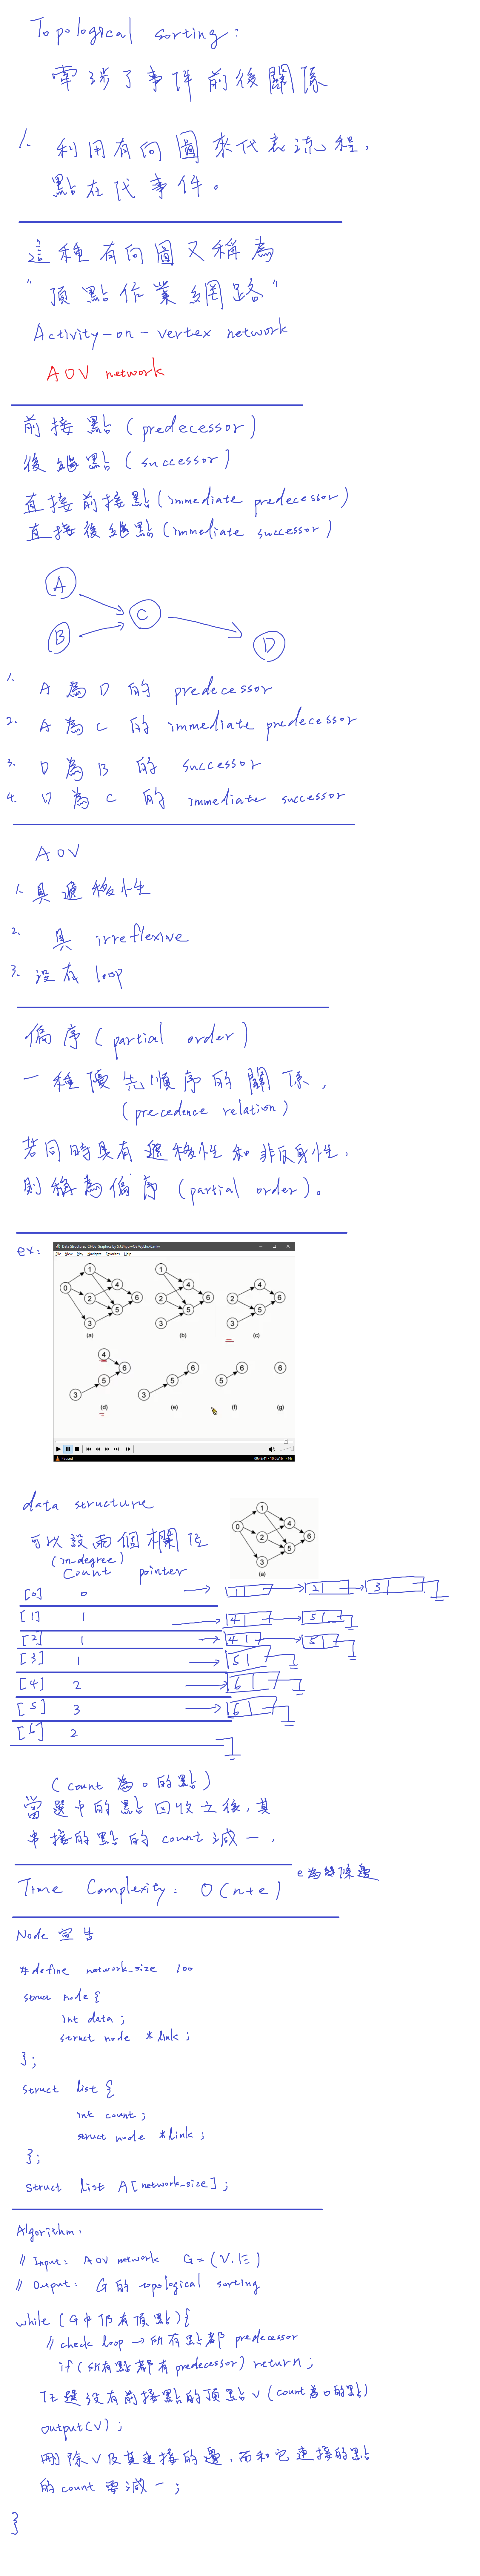 Topological sorting:
牽涉了事件前後關係
1. 利用有向圖來代表流程,
點在代事件。
這種有向圖又稱為
"頂點作業網路"
Activity-on-vertex network
AOV network
前接點 (predecessor)
後繼點 (successor)
直接前接點 (immediate predecessor)
直接後繼點 (immediate successor)
A
B
C
D
1. A 為 D 的 predecessor
2. A 為 C 的 immediate predecessor
3. D 為 B 的 successor
4. D 為 C 的 immediate successor
AOV
1. 具遞移性
2. 具 irreflexive
3. 沒有 loop
偏序 (partial order)
一種優先順序的關係,
(precedence relation)
若同時具有遞移性和非反身性,
則稱為偏序 (partial order)。
ex:
File View Play Navigate Favorites Help
0 1 2 3 4 5 6
(a)
1 2 3 4 5 6
(b)
2 3 4 5 6
(c)
3 4 5 6
(d)
3 5 6
(e)
5 6
(f)
6
(g)
Paused
data structure
可以設兩個欄位
0 1 2 3 4 5 6
(a)
(in-degree)
count pointer
[0] 0 1 2 3
[1] 1 4 5
[2] 1 4 5
[3] 1 5
[4] 2 6
[5] 3 6
[6] 2
(count 為 0 的點)
當選中的點回收之後,其
串接的點的 count 減一.
Time Complexity: O(n+e) e為幾條邊
Node 宣告
#define network_size 100
struct node {
int data;
struct node *link;
};
struct list {
int count;
struct node *link;
};
struct list A[network_size];
Algorithm.
// Input: AOV network G=(V.E)
// Ouput: G 的 topological sorting
while (G中仍有頂點){
// check loop → 所有點都 predecessor
if (所有點都有predecessor) return;
任選沒有前接點的頂點 v (count為0的點)
output(v);
刪除 v 及其連接的邊, 而和它連接的點
的 count 要減一;
}